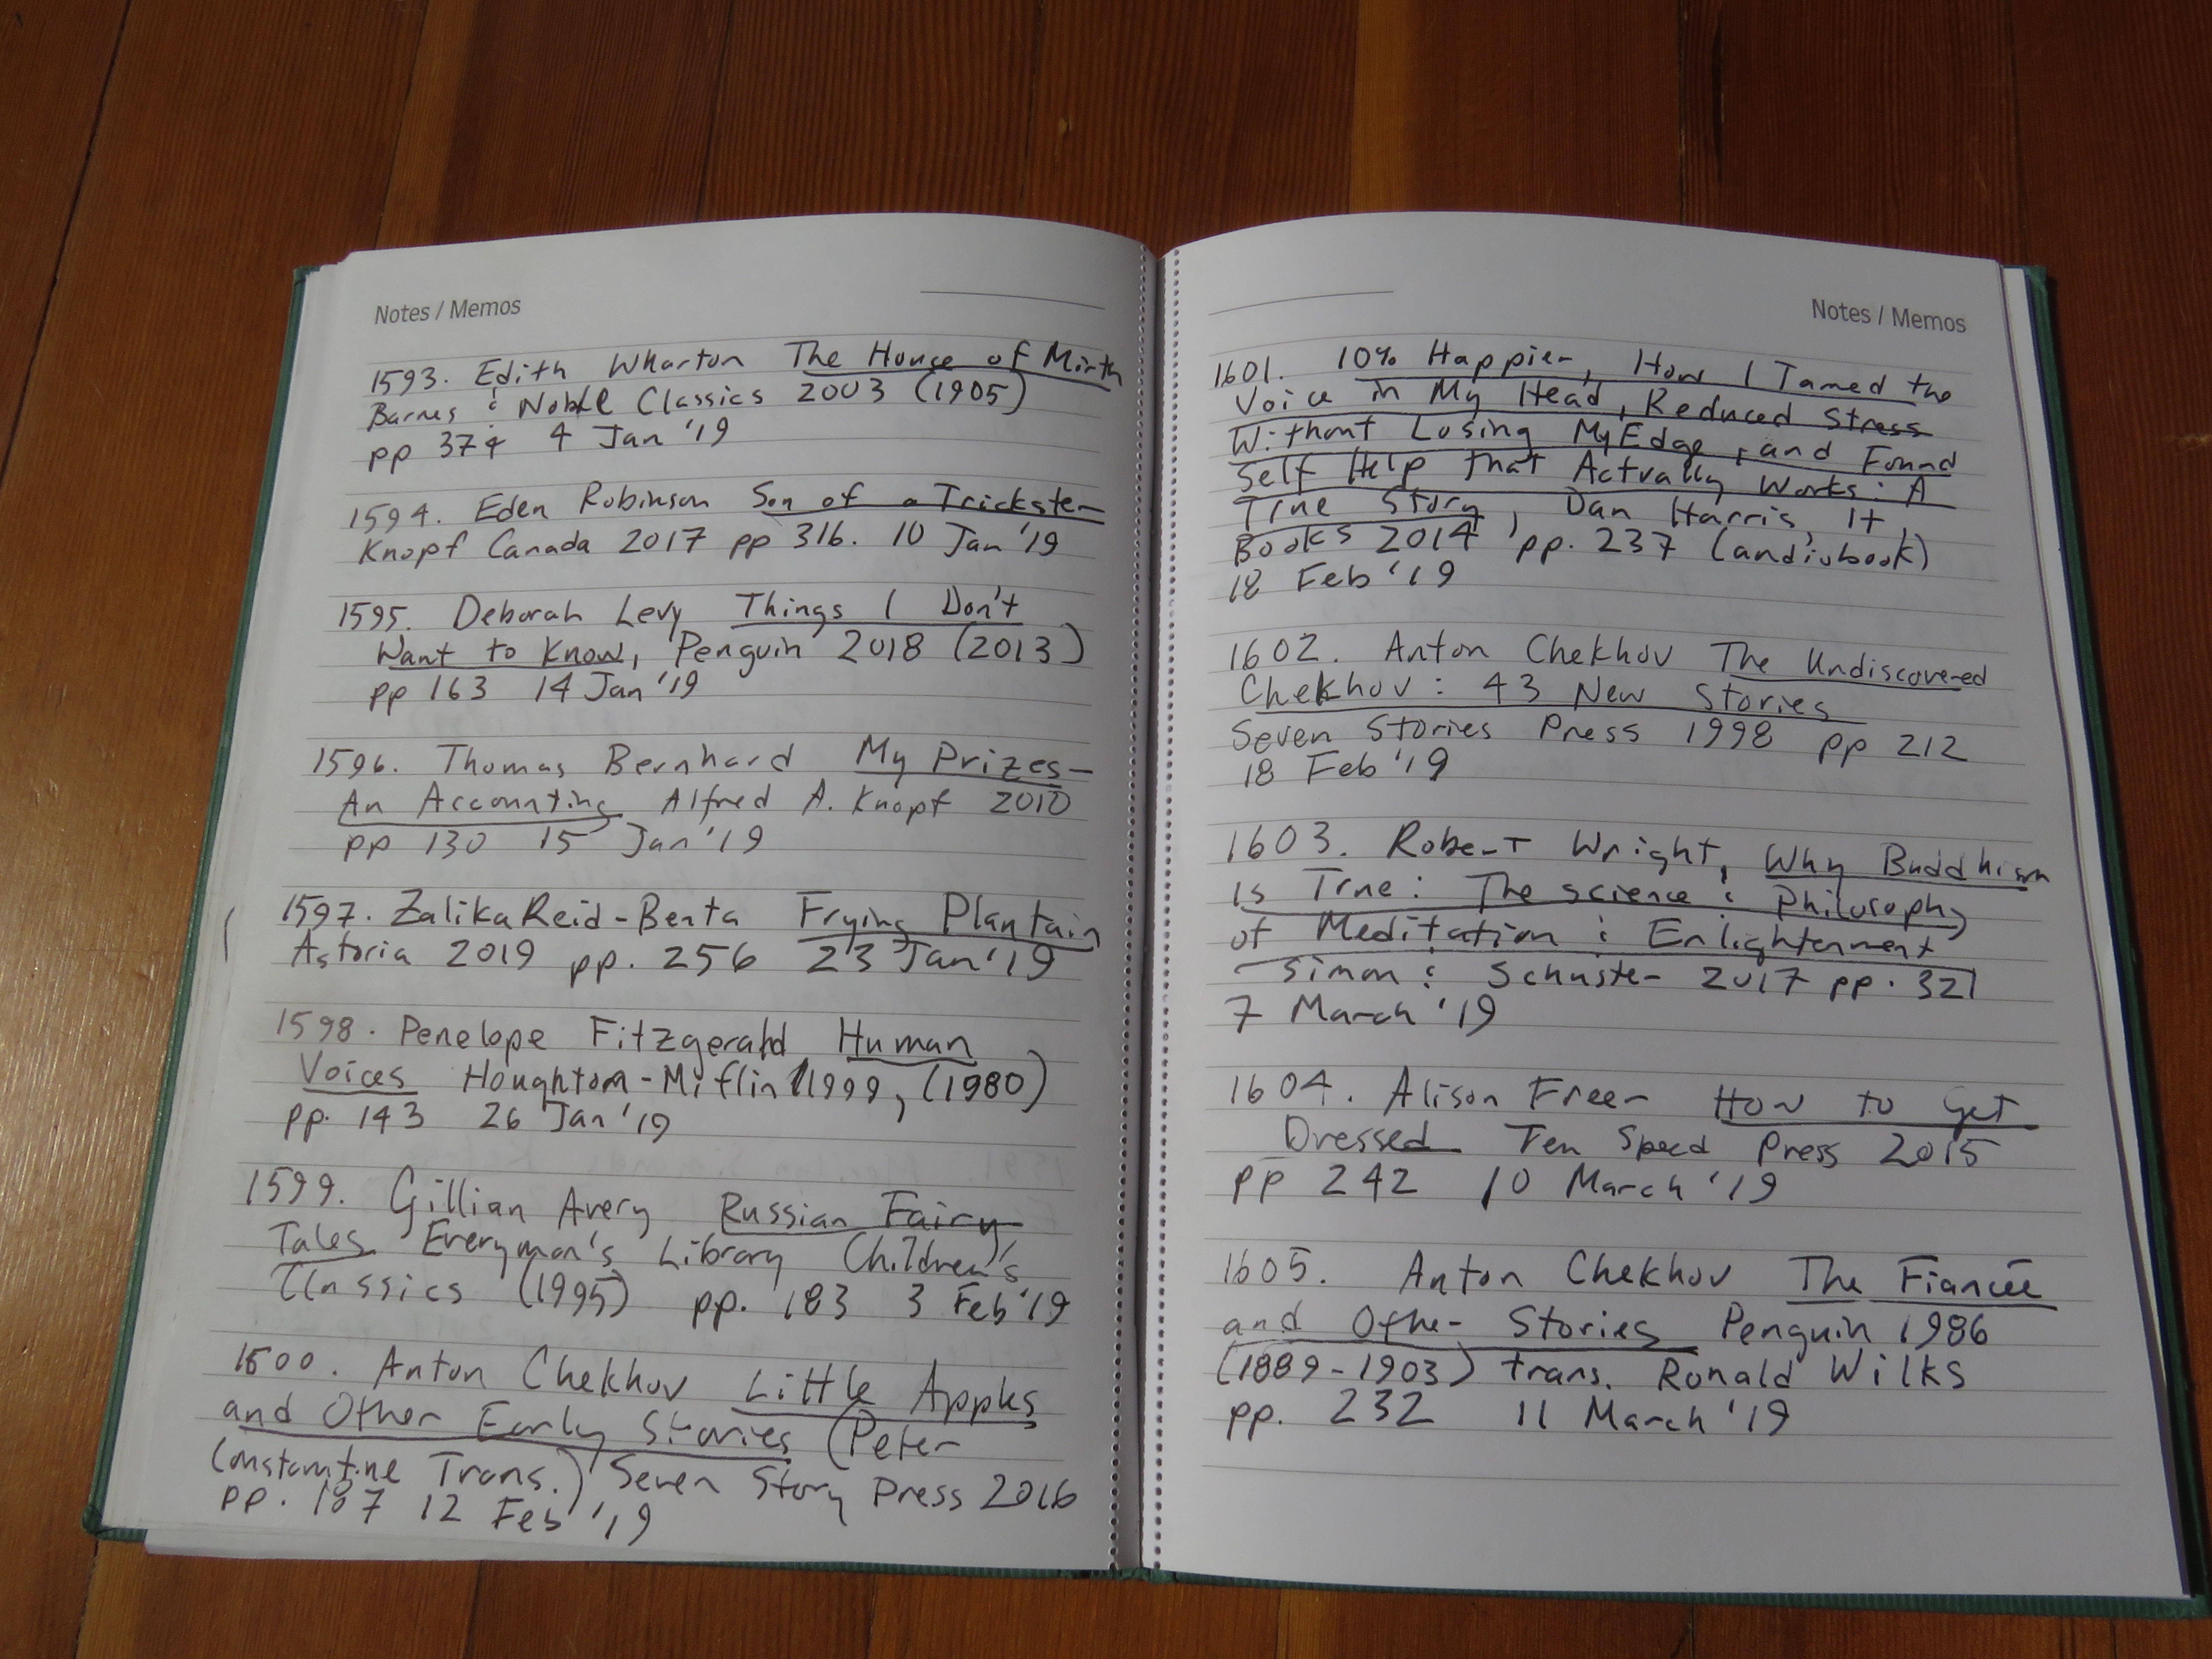 Notes / Memos
1593. Edith Wharton The House of Mirth
Barnes & Noble Classics 2003 (1905)
pp 374 4 Jan '19
1594. Eden Robinson Son of a Trickster
Knopf Canada 2017 pp 316. 10 Jan '19
1595. Deborah Levy Things I Don't
Want to Know, Penguin 2018 (2013)
pp 163 14 Jan '19
1596. Thomas Bernhard My Prizes-
An Accounting Alfred A. Knopf 2010
pp 130 15 Jan '19
1597. Zalika Reid-Benta Frying Plantain
Astoria 2019 pp. 256 23 Jan '19
1598. Penelope Fitzgerald Human
Voices Houghton-Miflin 1999, (1980)
pp. 143 26 Jan '19
1599. Gillian Avery Russian Fairy
Tales Everyman's Library Children's
Classics (1995) pp. 183 3 Feb '19
1600. Anton Chekhov Little Apples
and Other Early Stories (Peter
Constantine Trans.) Seven Story Press 2016
pp. 187 12 Feb '19
Notes / Memos
1601. 10% Happier, How I Tamed the
Voice in My Head, Reduced Stress
Without Losing My Edge, and Found
Self Help That Actually Works: A
True Story, Dan Harris, It
Books 2014, pp. 237 (audiobook)
18 Feb '19
1602. Anton Chekhov The Undiscovered
Chekhov: 43 New Stories
Seven Stories Press 1998 pp 212
18 Feb '19
1603. Robert Wright, Why Buddhism
is True: The science & Philosophy
of Meditation & Enlightenment
Simon & Schuster 2017 pp. 321
7 March '19
1604. Alison Freer How to Get
Dressed Ten Speed Press 2015
pp 242 10 March '19
1605. Anton Chekhov The Fiancée
and Other Stories Penguin 1986
(1889-1903) trans. Ronald Wilks
pp. 232 11 March '19